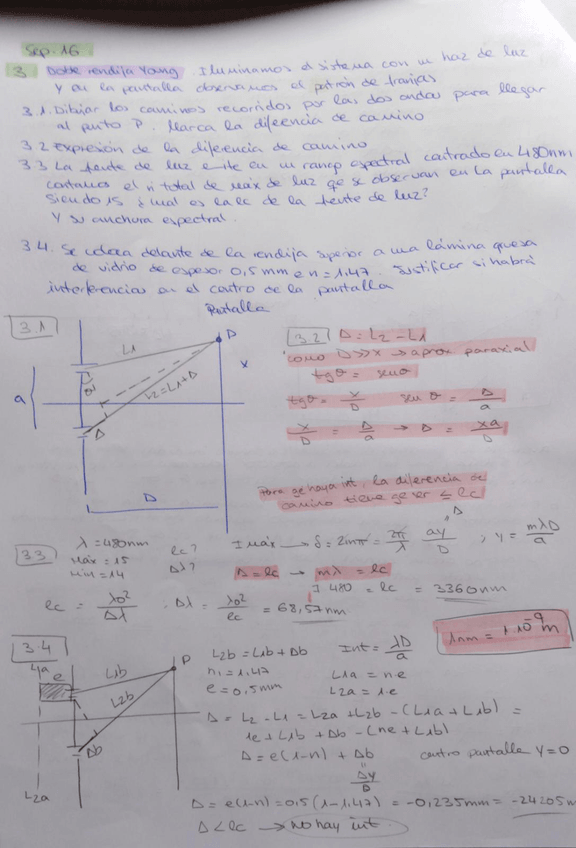 Sep. 16
3 Doble rendija Young. Iluminamos el sistema con un haz de luz
y en la pantalla observamos el patrón de franjas
3.1. Dibujar los caminos recorridos por las dos ondas para llegar
al punto P. Marca la diferencia de camino
3.2 Expresión de la diferencia de camino
3.3 La fuente de luz emite en un rango espectral centrado en 480nm
contamos el nº total de máx de luz qe se observan en la pantalla
siendo 15 ¿cual es la lc de la fuente de luz?
Y su anchura espectral.
3.4. Se coloca delante de la rendija superior a una lámina gruesa
de vidrio de espesor 0,5mm e n=1.47. Justificar si habrá
interferencias en el centro de la pantalla
Pantalla
3.1
L1
P
x
θ
L2=L1+Δ
a
Δ
D
3.2
Δ = L2 - L1
como D>>x → aprox paraxial
tgθ = senθ
tgθ = x/D senθ = Δ/a
x/D = Δ/a → Δ = xa/D
Para qe haya int, la diferencia de
camino tiene qe ser ≤ lc
3.3
λ = 480nm
máx = 15
min = 14
lc?
Δλ?
Imáx → δ = 2mπ = 2π/λ ay/D ; y = mλD/a
Δ
Δ = lc → mλ = lc
7 480 = lc = 3360nm
lc = λ0²/Δλ ; Δλ = λ0²/lc = 68,57nm
1nm = 1·10⁻⁹ m
3.4
L1a
e
L1b
P
L2b
Δb
L2a
L2b = L1b + Δb Int = λD/a
n1 = 1.47 L1a = n·e
e = 0,5mm L2a = 1·e
Δ = L2 - L1 = L2a + L2b - (L1a + L1b) =
1e + L1b + Δb - (ne + L1b)
Δ = e(1-n) + Δb centro pantalla y=0
Δy/D
Δ = e(1-n) = 0,5(1-1,47) = -0,235mm =
Δ < lc → no hay int.